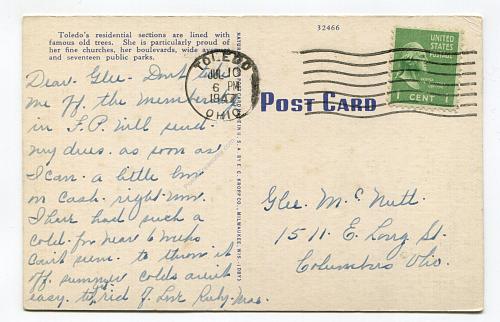 Toledo's residential sections are lined with
famous old trees. She is particularly proud of
her fine churches, her boulevards, wide av
and seventeen public parks.
Dear Glee- Don't
me off the membership
in F.P. Will send
my dues. as soon as
I can. a little low
on cash. right now.
I have had such a
cold for near 6 weeks
Can't seem to throw it
off. summer colds aren't
easy to get rid of Love Ruby-Mas.
32466
TOLEDO
JUL 10
6 PM
1947
OHIO
UNITED
STATES
POSTAGE
1 CENT 1
POST CARD
Glee McNutt
1511 E. Long St.
Columbus Ohio.